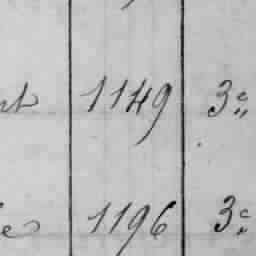 1149 3e
1196 3e